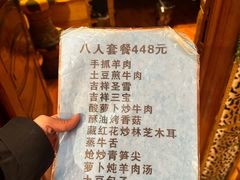 八人套餐448元
手抓羊肉
土豆煎牛肉
吉祥圣雪
吉祥三宝
酸萝卜炒牛肉
酥油烤香菇
藏红花炒林芝木耳
蒸牛舌
炝炒青笋尖
萝卜炖羊肉汤